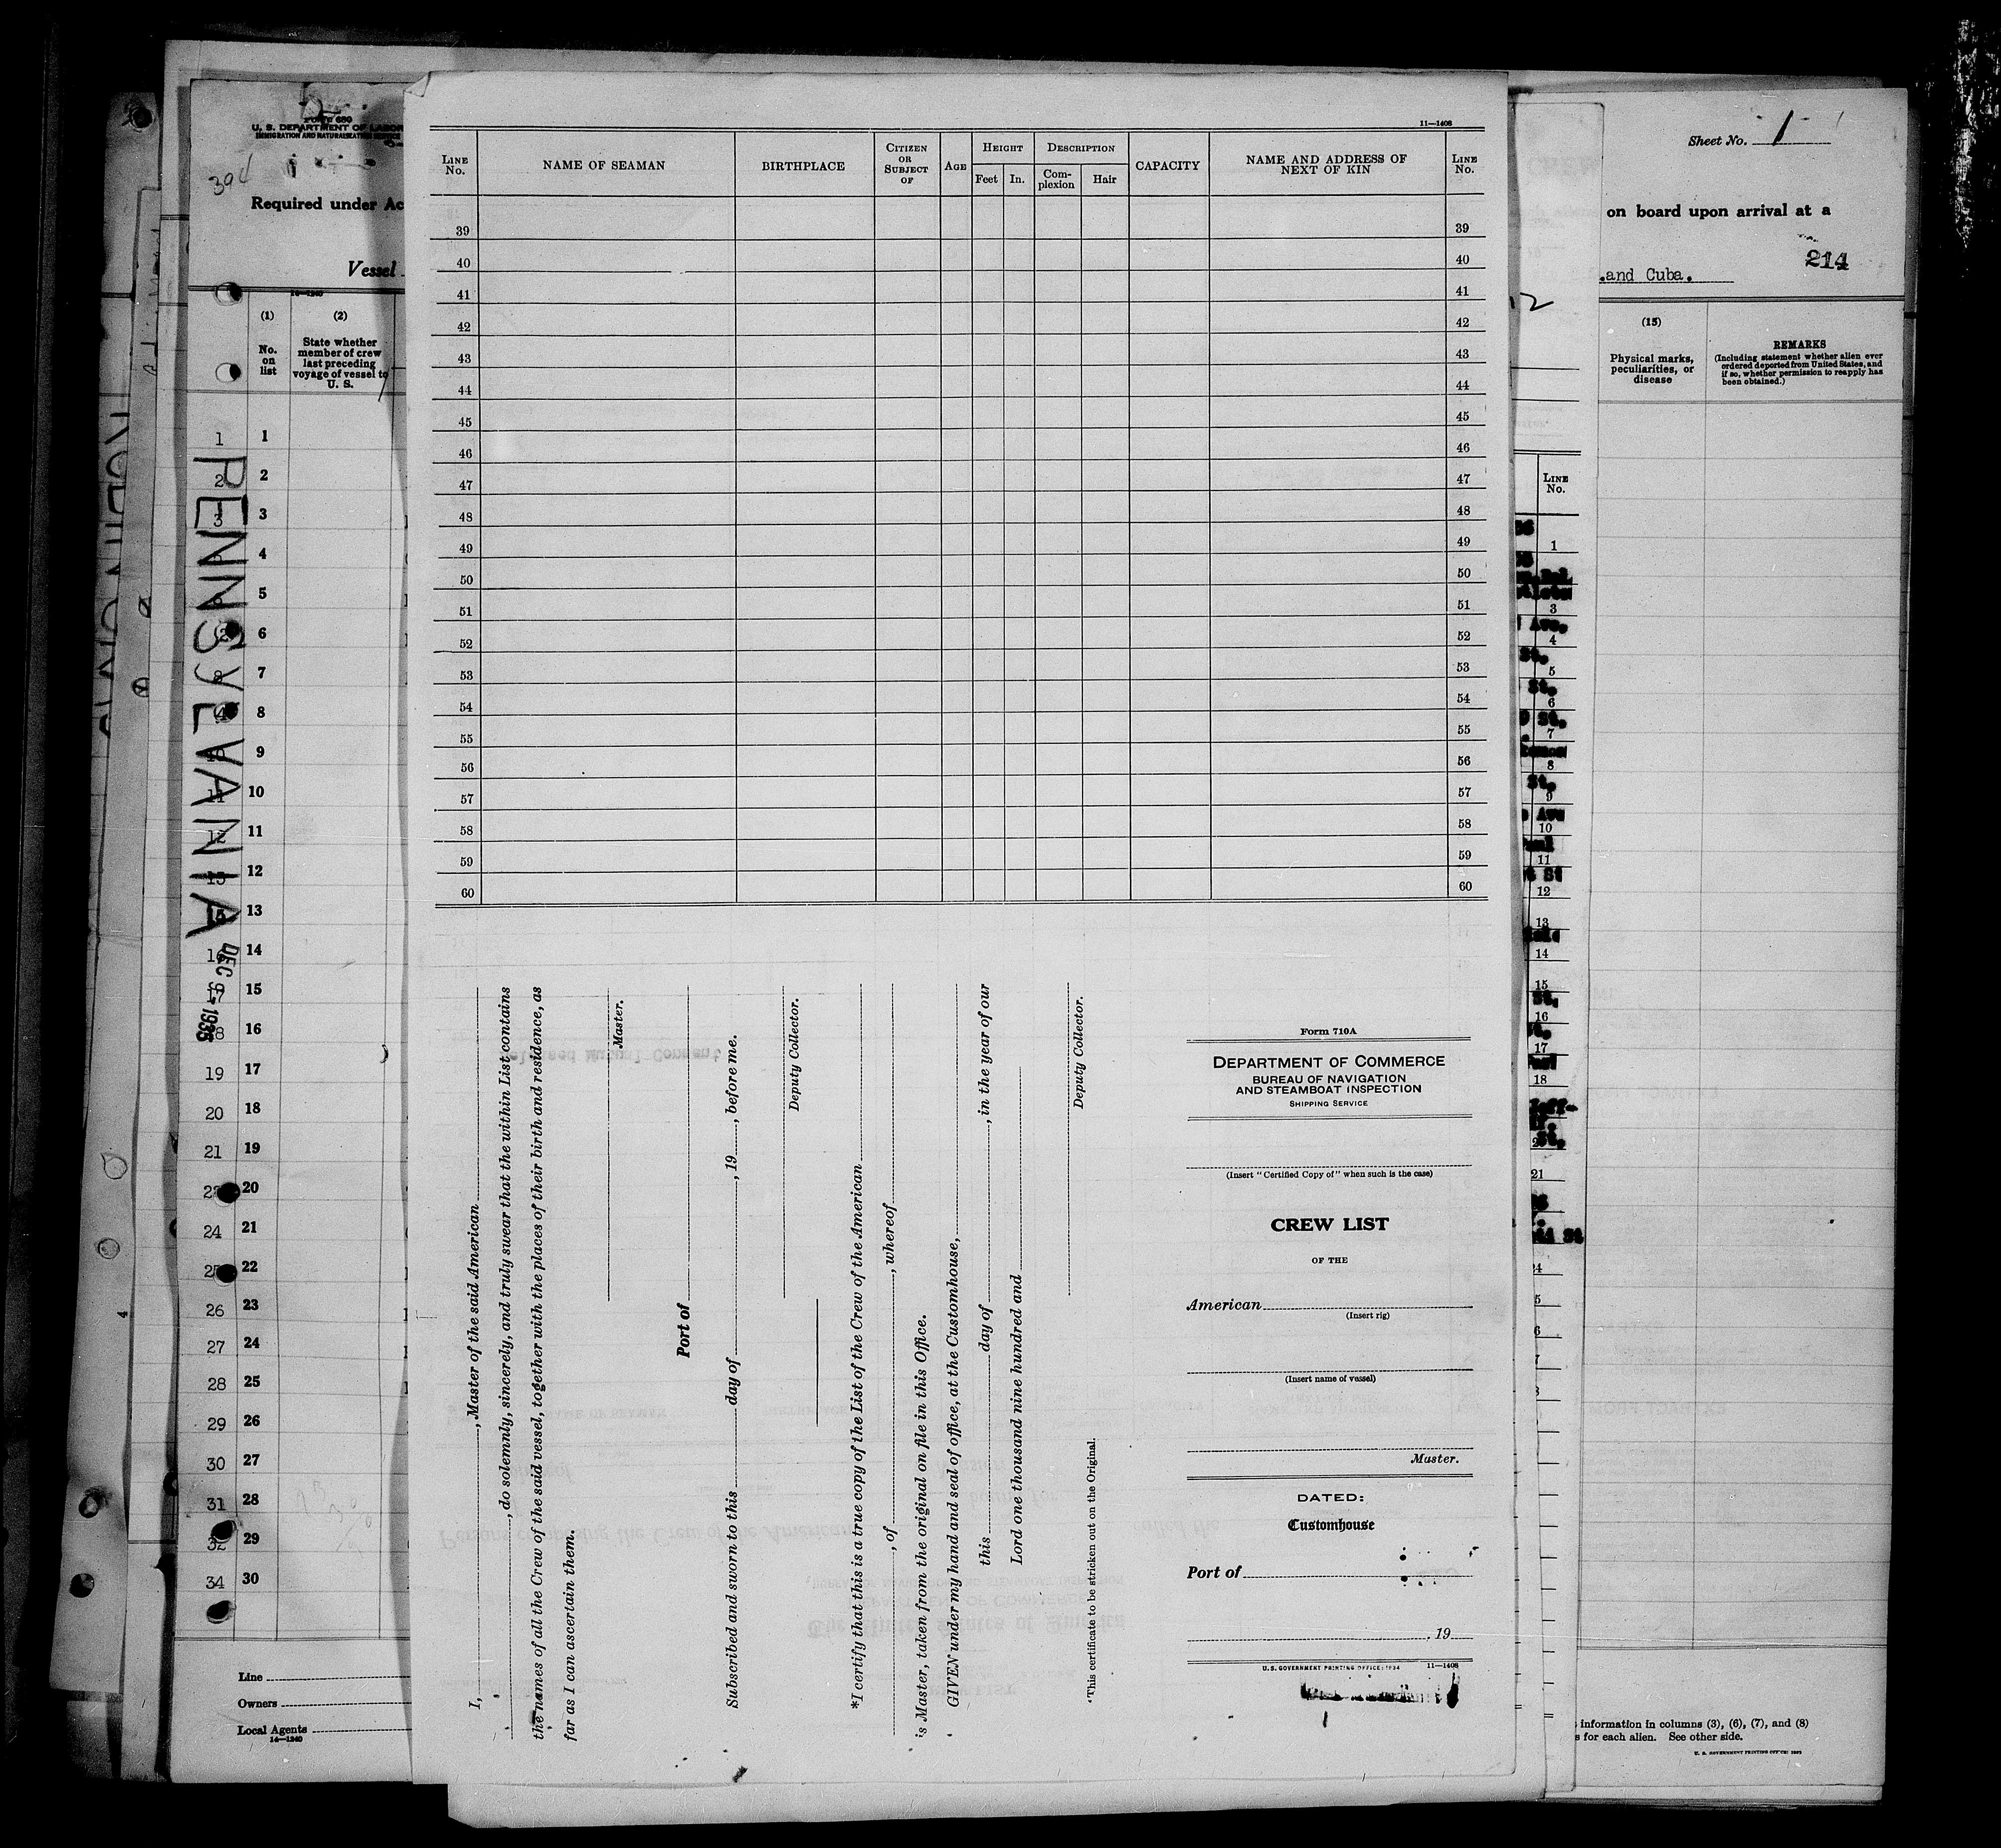 FORM 680
U. S. DEPARTMENT OF LABOR
IMMIGRATION AND NATURALIZATION SERVICE
394
Required under Ac
Vessel
14—1240
(1)
No.
on
list
(2)
State whether
member of crew
last preceding
voyage of vessel to
U. S.
1 1
2 2
3 3
4
5
6
7
8
9
10
11 10
12 11
12
13
14
17 15
16
19 17
20 18
21 19
20
24 21
25 22
26 23
27 24
28 25
29 26
30 27
31 28
32 29
34 30
PENNSYLVANIA
DEC 9 - 1935
Line
Owners
Local Agents
14—1240
11—1408
LINE No.
NAME OF SEAMAN
BIRTHPLACE
CITIZEN OR SUBJECT OF
AGE
HEIGHT
Feet In.
DESCRIPTION
Com-plexion
Hair
CAPACITY
NAME AND ADDRESS OF NEXT OF KIN
LINE No.
39 39
40 40
41 41
42 42
43 43
44 44
45 45
46 46
47 47
48 48
49 49
50 50
51 51
52 52
53 53
54 54
55 55
56 56
57 57
58 58
59 59
60 60
I, , Master of the said American
, do solemnly, sincerely, and truly swear that the within List contains
the names of all the Crew of the said vessel, together with the places of their birth and residence, as
far as I can ascertain them.
Master.
Port of
Subscribed and sworn to this day of , 19 , before me.
Deputy Collector.
*I certify that this is a true copy of the List of the Crew of the American
, of , whereof
is Master, taken from the original on file in this Office.
GIVEN under my hand and seal of office, at the Customhouse,
this day of , in the year of our
Lord one thousand nine hundred and
Deputy Collector.
*This certificate to be stricken out on the Original.
Form 710A
DEPARTMENT OF COMMERCE
BUREAU OF NAVIGATION
AND STEAMBOAT INSPECTION
SHIPPING SERVICE
(Insert "Certified Copy of" when such is the case)
CREW LIST
OF THE
American
(Insert rig)
(Insert name of vessel)
Master.
DATED:
Customhouse
Port of
, 19
U.S. GOVERNMENT PRINTING OFFICE: 1934 11—1408
LINE No.
1
3
Ave.
4
St.
5
St.
6
St.
7
8
St.
9
10
11
St
12
13
14
15
St.
16
17
18
St.
21
St
Sheet No. 1
on board upon arrival at a
214
.and Cuba.
(15)
Physical marks,
peculiarities, or
disease
REMARKS
(Including statement whether alien ever
ordered deported from United States, and
if so, whether permission to reapply has
been obtained.)
information in columns (3), (6), (7), and (8)
s for each alien. See other side.